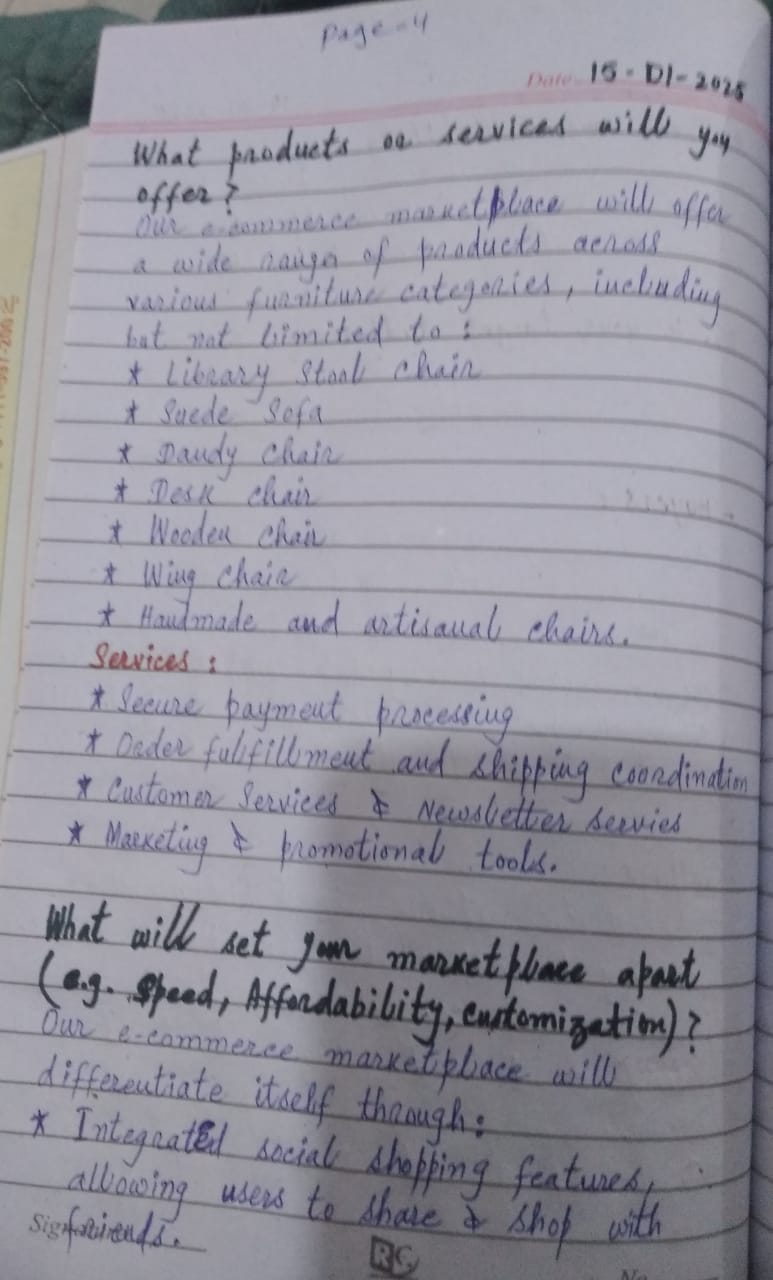 Page-4
Date 15-01-2025
What products or services will you
offer?
Our e-commerce marketplace will offer
a wide range of products across
various furniture categories, including
but not limited to:
* Library Stool chair
* Suede Sofa
* Dandy chair
* Desk chair
* Wooden chair
* Wing chair
* Handmade and artisanal chairs.
Services:
* Secure payment processing
* Order fulfillment and shipping coordination
* Customer Services & Newsletter servies
* Marketing & promotional tools.
What will set your marketplace apart
(e.g. Speed, Affordability, customization)?
Our e-commerce marketplace will
differentiate itself through:
* Integrated social shopping features,
allowing users to share & shop with
friends.
RC